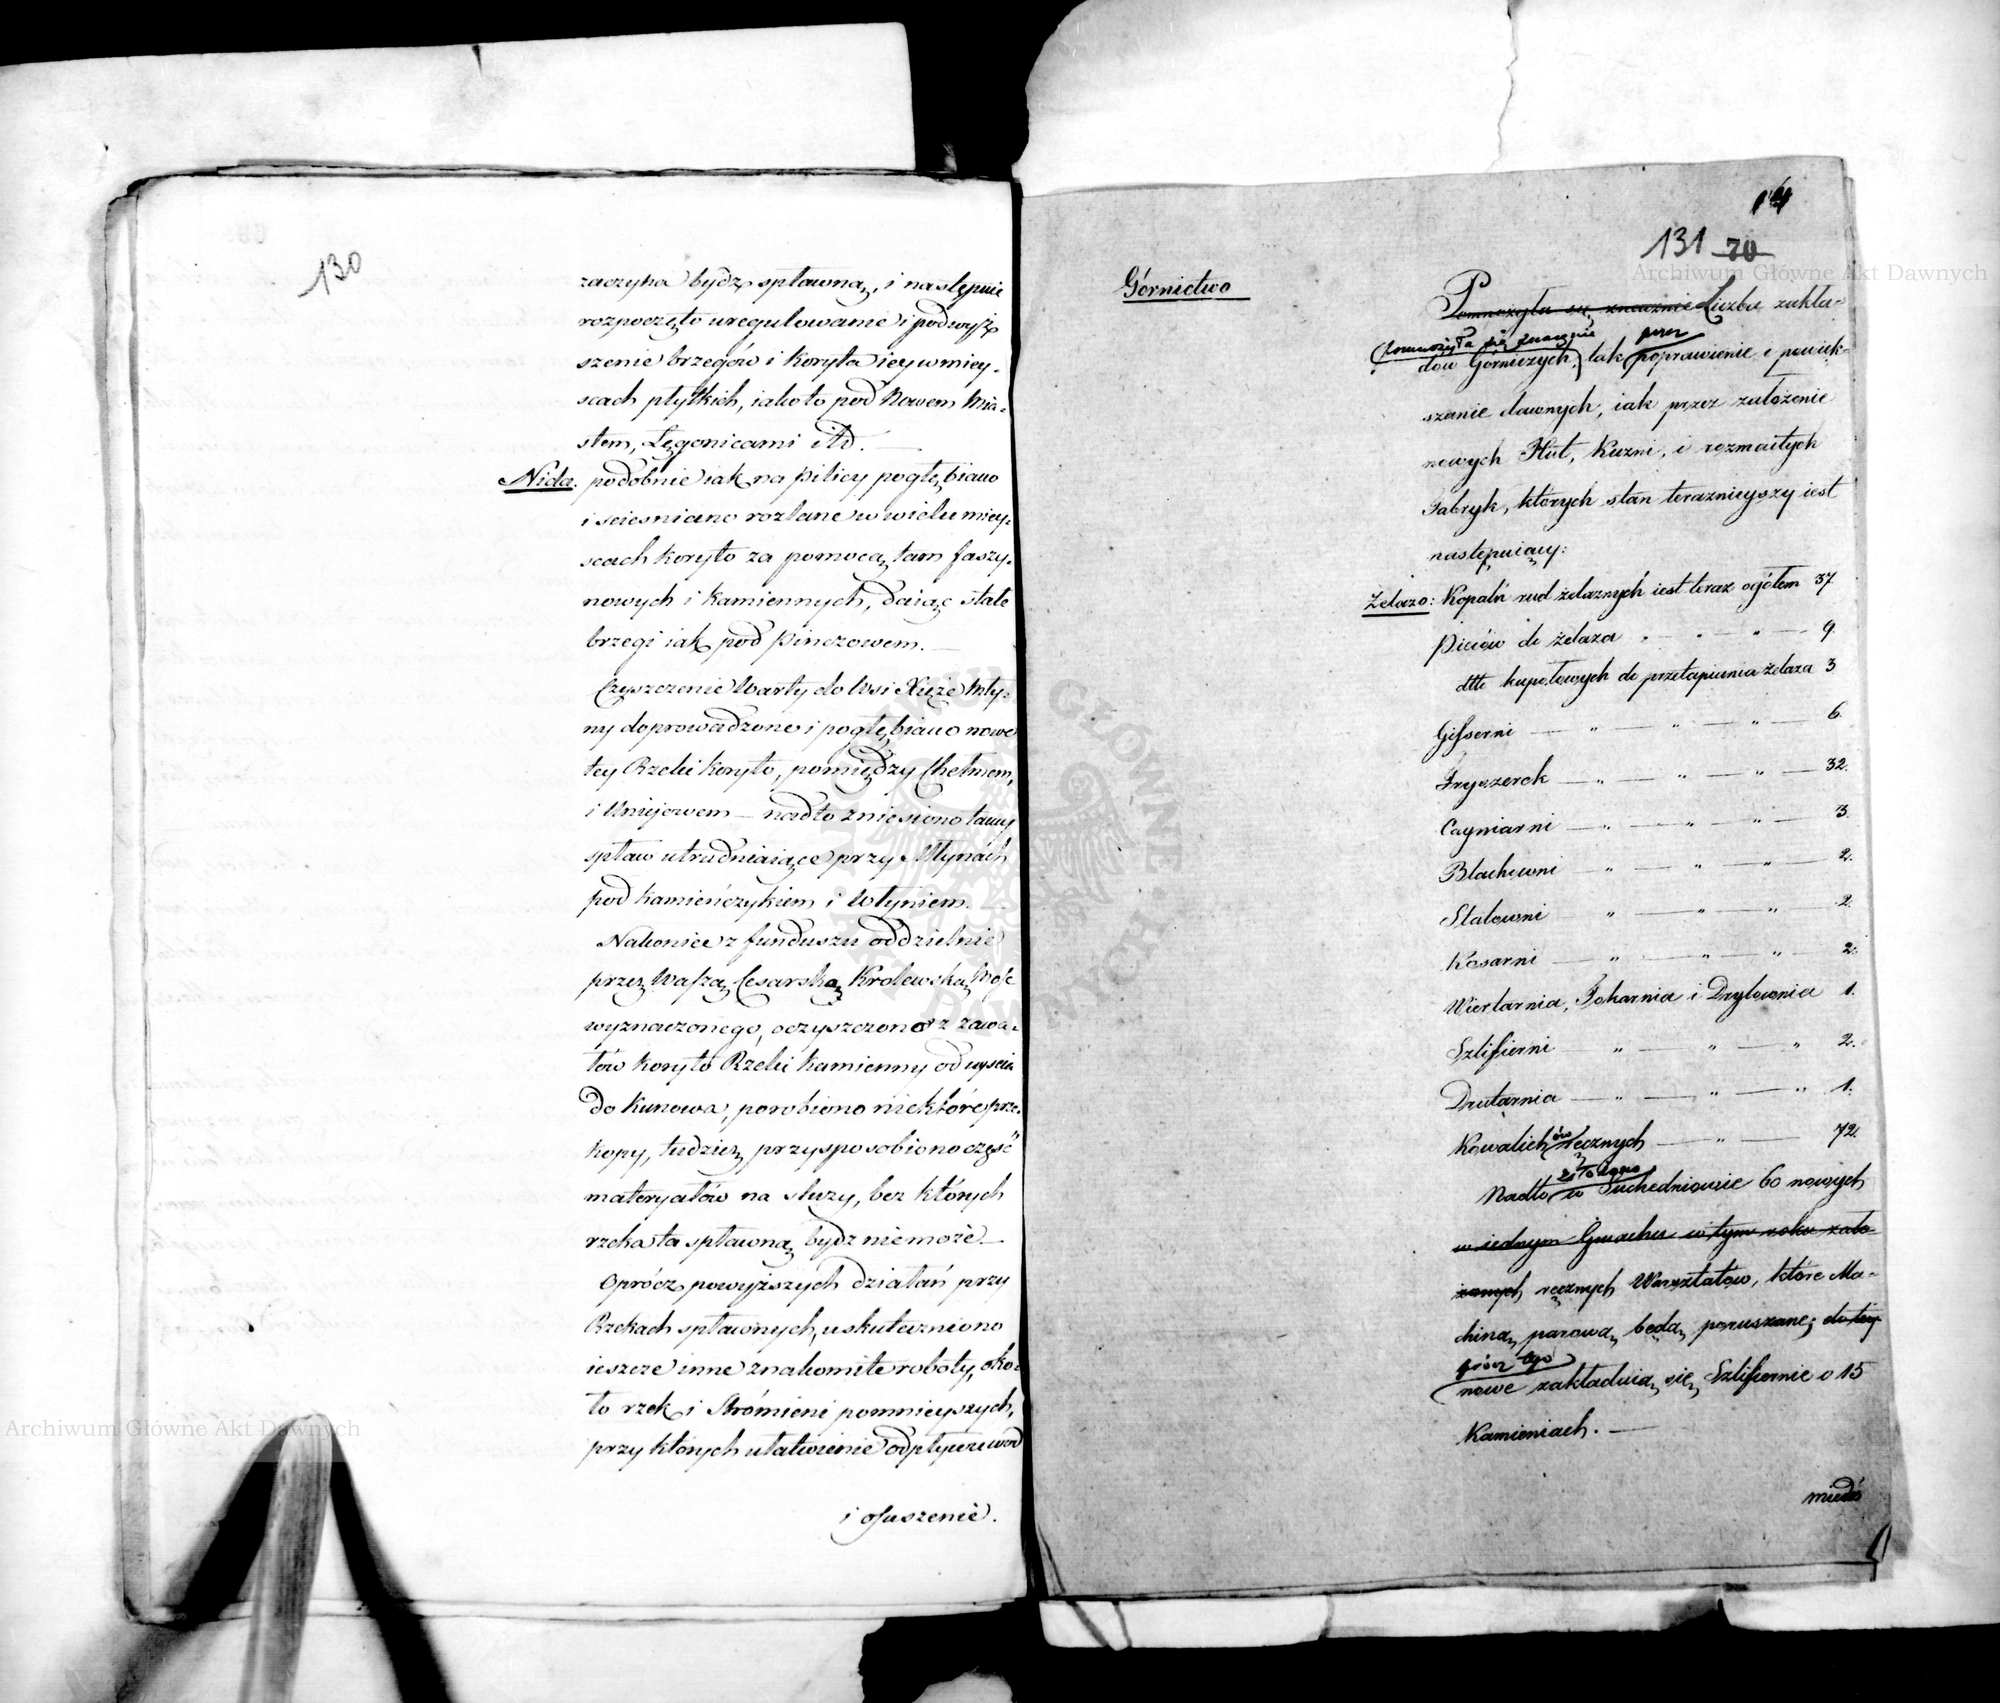 130
zaczyna bydz spławną, i następnie
rozpoczęto uregulowanie i podwyż
szenie brzegów i koryta iey w miey-
scach płytkich, iako to pod Nowem Mia-
stem, Łęgonicami itd.
Nida. podobnie iak na Pilicy pogłębiano
i scieśniano rozlane w wielu miey-
scach koryto za pomocą tam faszy-
nowych i kamiennych, daiąc stałe
brzegi iak pod Pinczowem.
Czyszczenie Warty do Wsi Xięże Mły-
ny doprowadzono i pogłębiano nowe
tey Rzeki koryto, pomiędzy Chełmem,
i Uniejowem — nadto zniesiono tamy
spław utrudniaiące przy Młynach
pod Kamieńczykiem i Wtyniem.
Nakoniec z funduszu oddzielnie
przez Waszą Cesarską Krolewską Mość
wyznaczonego, oczyszczono z zawa-
łów koryto Rzeki Kamienny od uyścia
do Kunowa, porobiono niektóre prze-
kopy, tudzież przysposobiono część
materyałów na sluzy, bez których
rzeka ta spławną bydz nie może.
Oprócz powyższych działań przy
Rzekach spławnych, uskuteczniono
ieszcze inne znakomite roboty, oko-
ło rzek i Strómieni pomnieyszych,
przy których ułatwienie odpływu wód
i osuszenie.
131 70
Górnictwo
Pomnożyła się znacznie Liczba zakła-
pomnożyła się znacznie przez
dów Górniczych, tak poprawienie i powięk-
szenie dawnych, iak przez założenie
nowych Hut, Kuzni, i rozmaitych
Fabryk, których stan teraznieyszy iest
następuiący:
Żelazo: Kopalń rud żelaznych iest teraz ogółem 37.
Pieców do żelaza " — " — 9.
dtto kupolowych do przetapiania żelaza 3
Gisserni — " — " — " — 6.
Fryszerek — " — " — " — 32.
Cayniarni — " — " — " — 3.
Blachowni — " — " — " — 2.
Stalowni — " — " — " — 2.
Kosarni — " — " — " — 2.
Wiertarnia, Tokarnia i Drylownia 1.
Szlifierni — " — " — " 2.
Drutarnia — " — " — " 1.
ów
Kowalich ręcznych — " — 72.
założono
Nadto w Suchedniowie 60 nowych
w iednym Gmachu w tym roku zało-
żonych ręcznych Warsztatow, które Ma-
chiną parową będą poruszane; do tey
prócz tego
nowe zakładaią się Szlifiernie o 15
Kamieniach. —
miedź
Archiwum Główne Akt Dawnych
Archiwum Główne Akt Dawnych